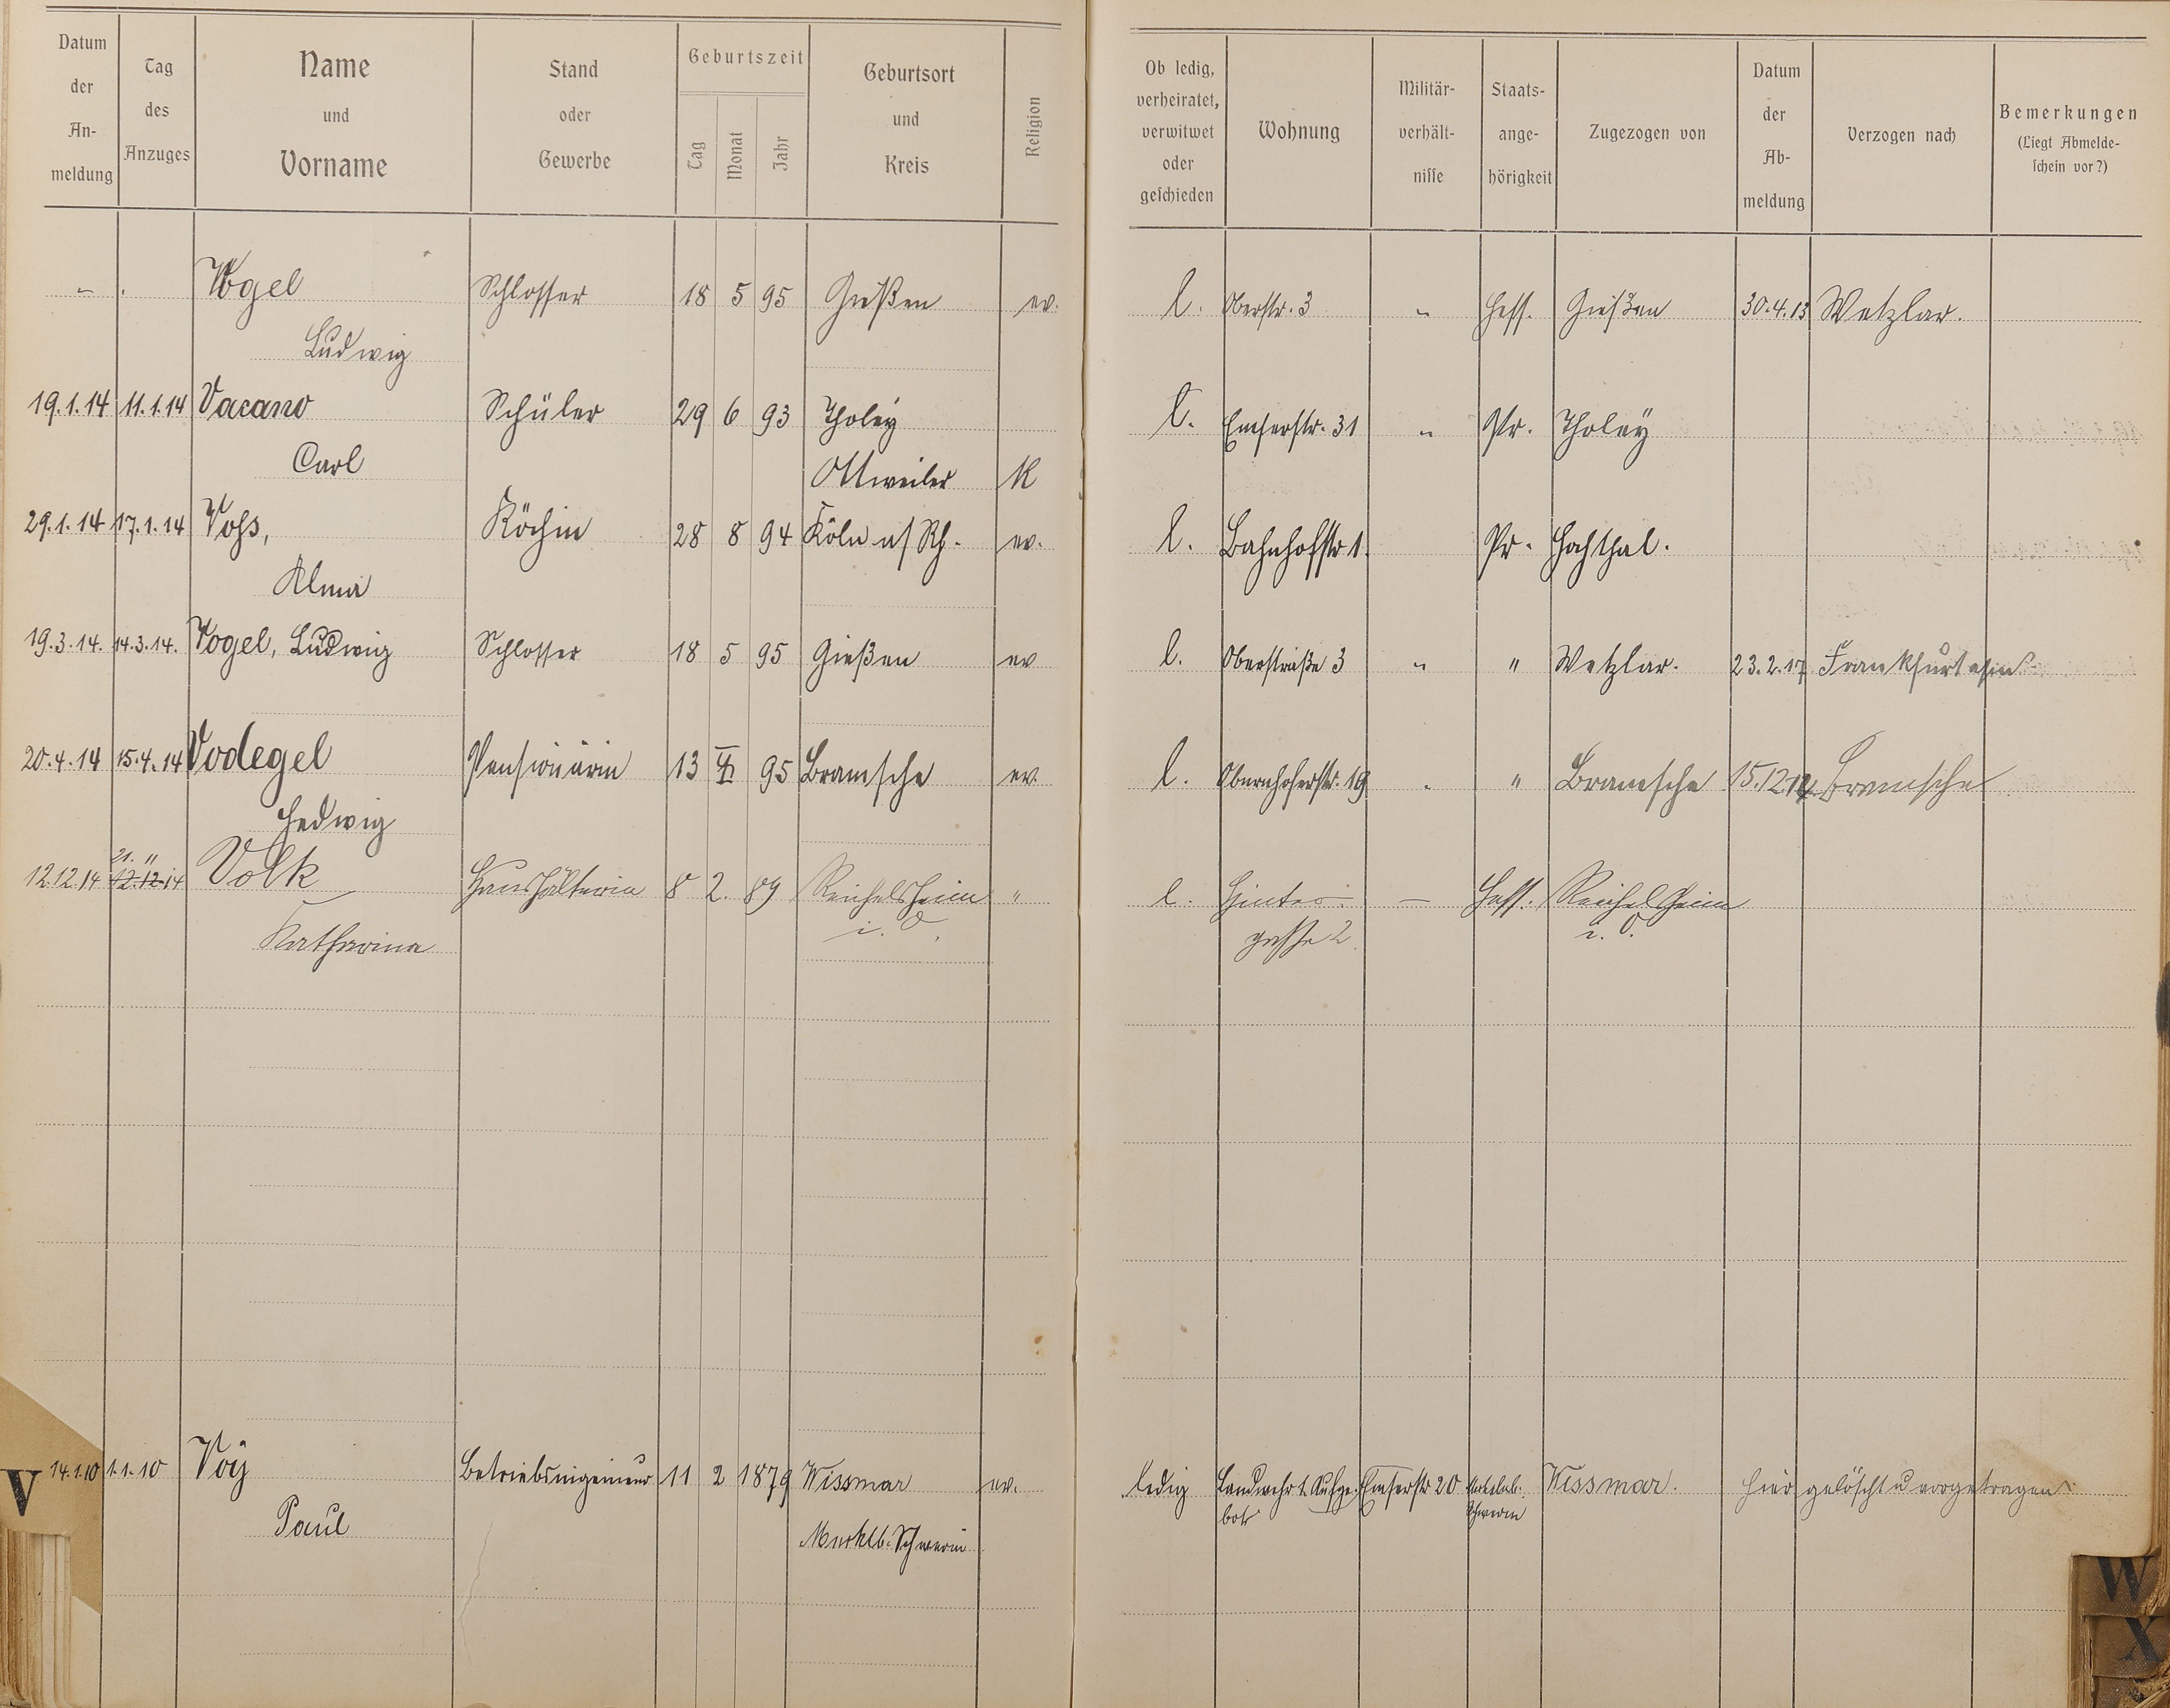 Datum der An-meldung | Tag des Anzuges | Name und Vorname | Stand oder Gewerbe | Geburtszeit Tag Monat Jahr | Geburtsort und Kreis | Religion | Ob ledig, verheiratet, verwitwet oder geschieden | Wohnung | Militär-verhält-nisse | Staats-ange-hörigkeit | Zugezogen von | Datum der Ab-meldung | Verzogen nach | Bemerkungen (Liegt Abmelde-schein vor?)
" . Vogel Schlosser 18 5 95 Gießen ev. l. Oberstr. 3 " Hess. Gießen 30.4.13 Wetzlar.
Ludwig
19.1.14 11.1.14 Vacano Schüler 29 6 93 Tholey l. Emserstr. 31 " Pr. Tholey
Carl Ottweiler K
29.1.14 17.1.14 Voss, Köchin 28 8 94 Köln a/Rh. ev. l. Bahnhofstr 1. Pr. Hochthal.
Alma
19.3.14. 14.3.14. Vogel, Ludwig Schlosser 18 5 95 Gießen ev l. Oberstraße 3 " " Wetzlar. 23.2.17 Frankfurt a/m
20.4.14 15.4.14 Vodegel Pensionärin 13 95 Bramsche ev. l. Obernhoferstr. 19 " " Bramsche 15.12.14 Bramsche
Hedwig
21. "
12.12.14 12.12.14 Volk Haushälterin 8 2. 89 Reichelsheim " l. Hinter- — Hess. Reichelsheim
Katharina i. O. gasse 2. i. O.
V 14.1.10 1.1.10 Voij Betriebsingenieur 11 2 1879 Wissmar ev. ledig Landwehr 1. Aufge- Emserstr 20 Mecklenb. Wissmar. hier gelöscht u vorgetragen
Paul Mecklb. Schwerin bot Schwerin
W
X